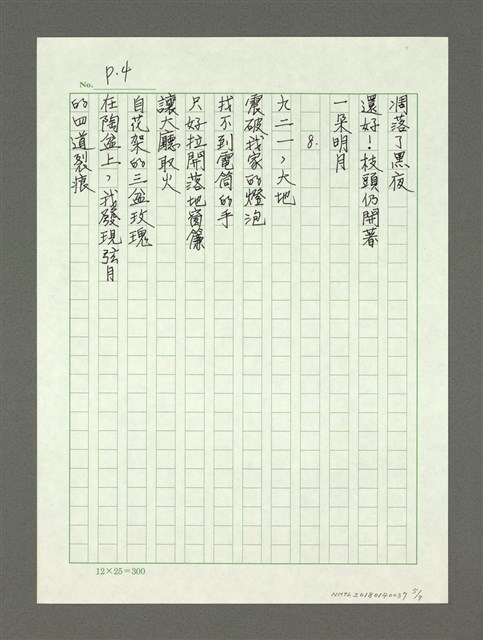 P.4
No.
凋落了黑夜
還好！枝頭仍開著
一朵明月
8.
九二一，大地
震破我家的燈泡
找不到電筒的手
只好拉開落地窗簾
讓大廳取火
自花架的三盆玫瑰
在陶盆上，我發現弦月
的四道裂痕
12×25=300
NMTL20180140037 5/9